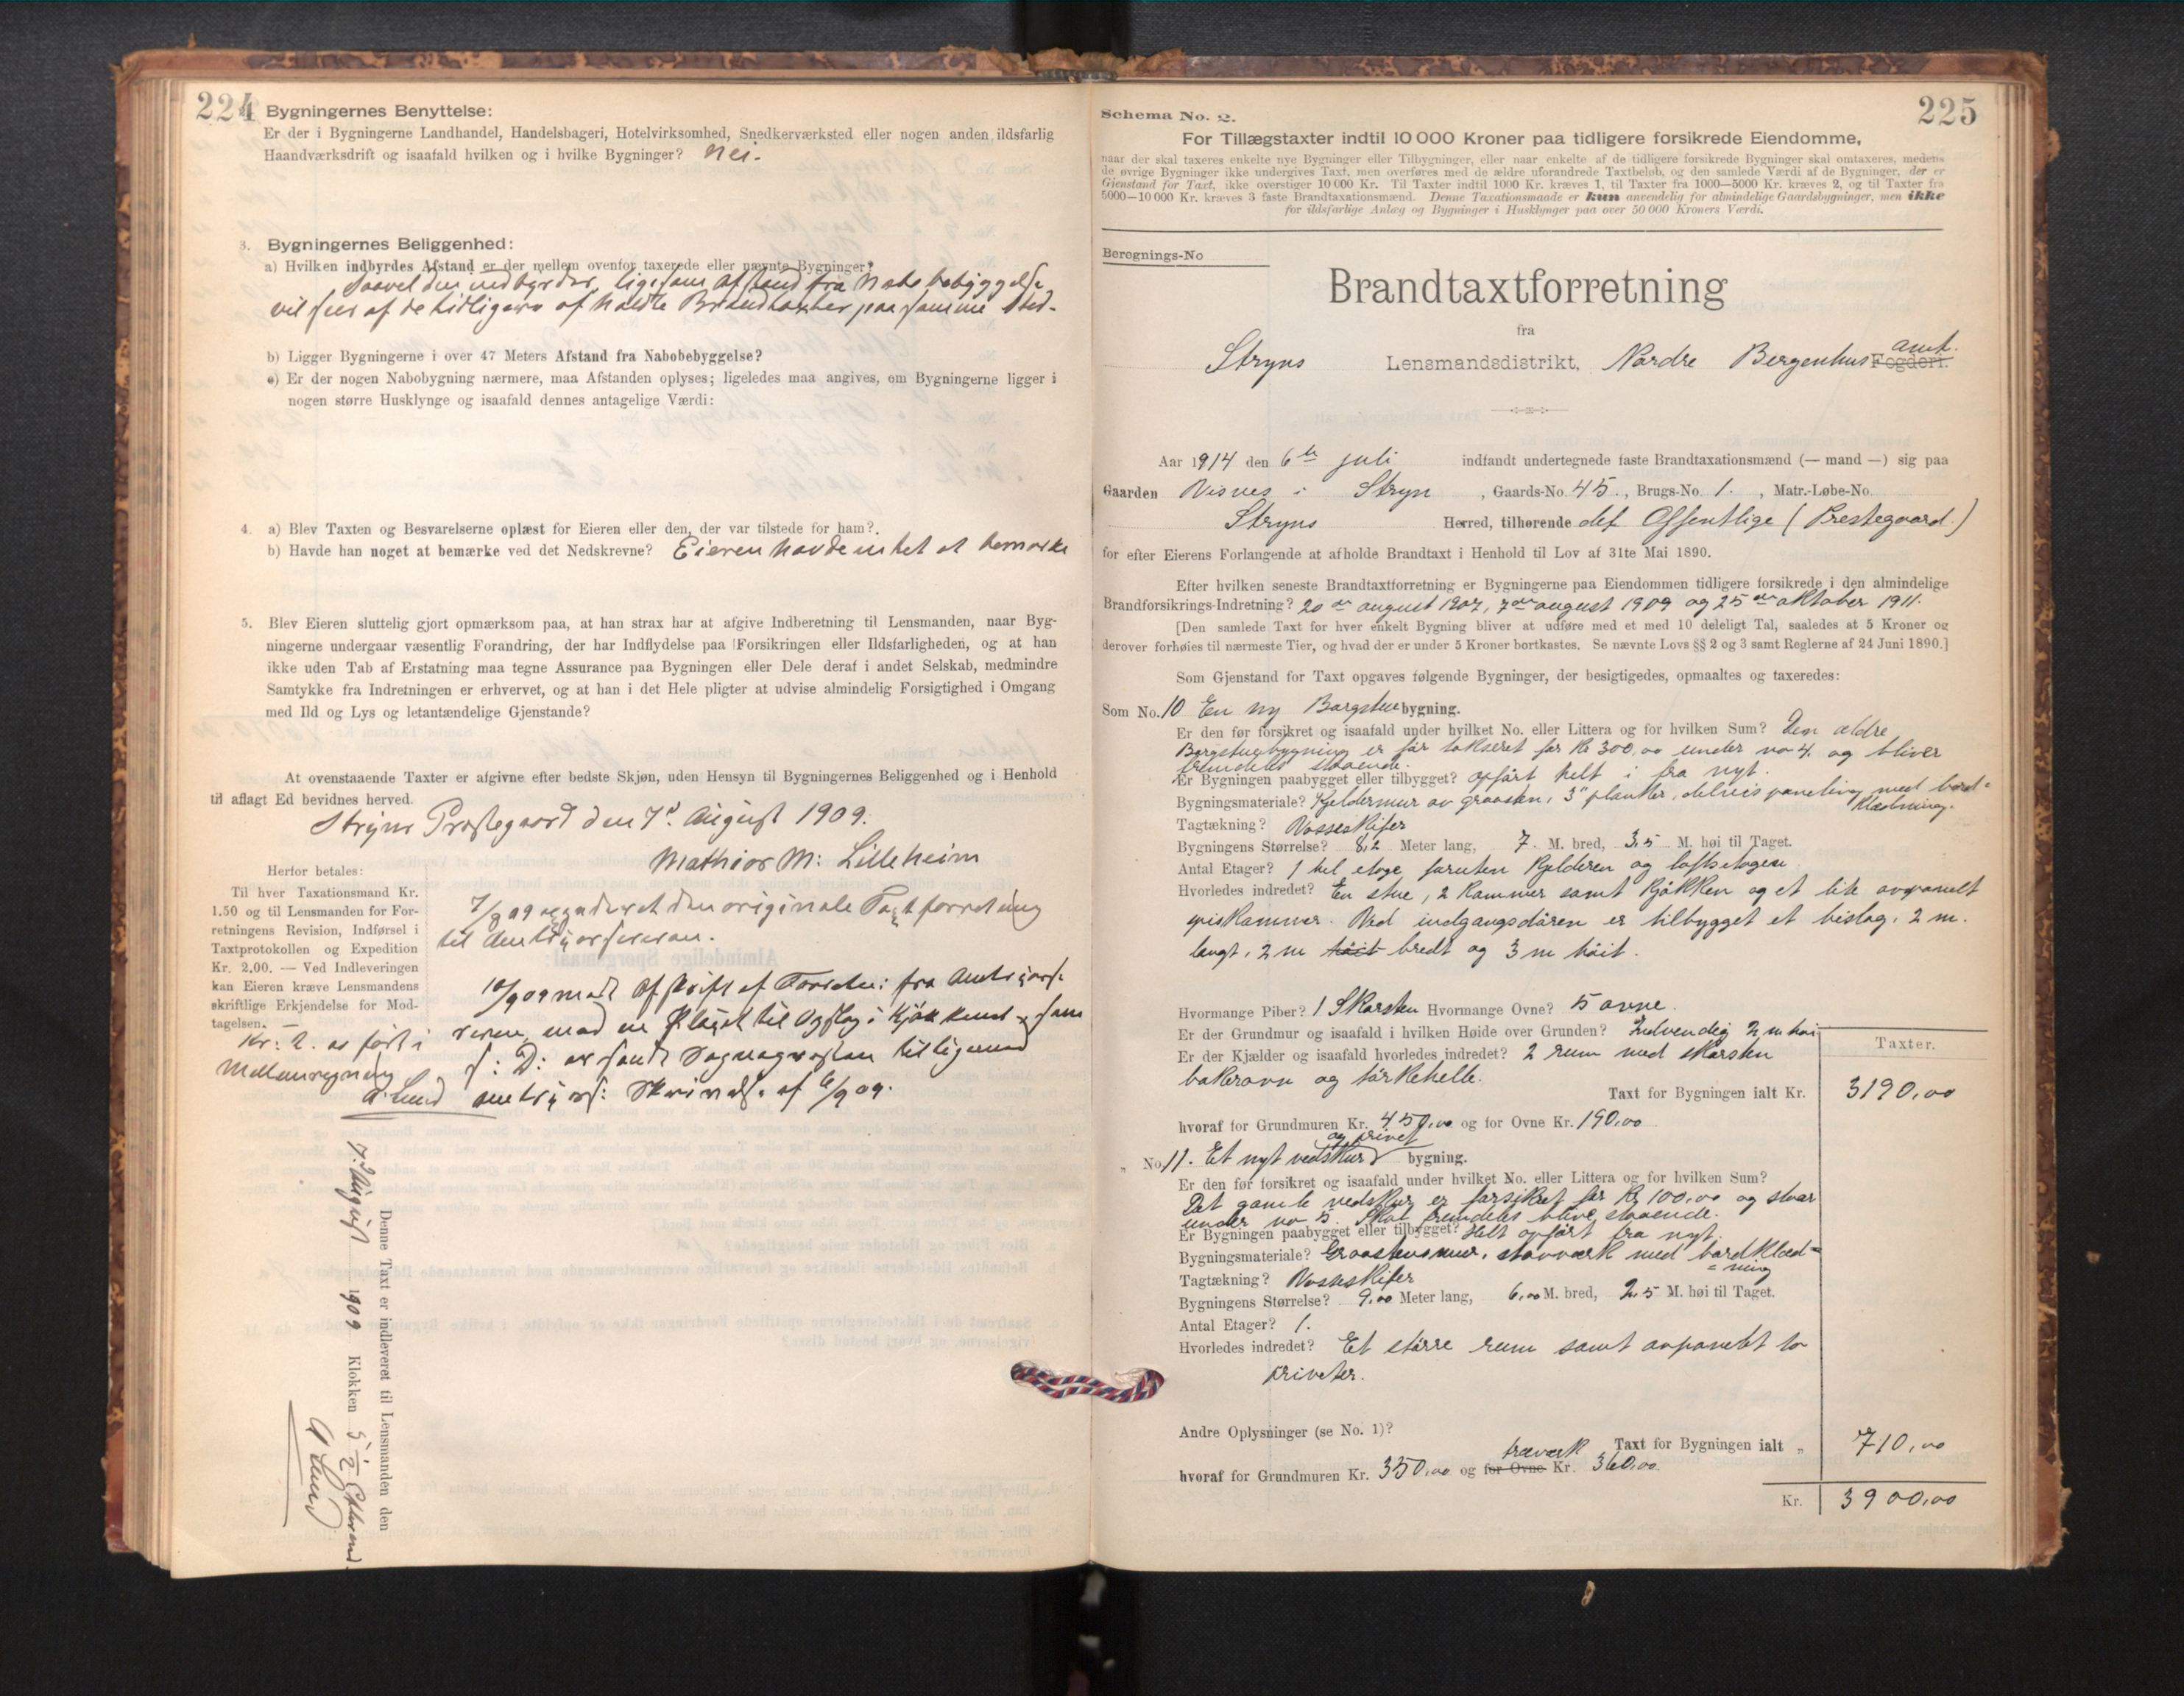 224
Bygningernes Benyttelse:
Er der i Bygningerne Landhandel, Handelsbageri, Hotelvirksomhed, Snedkerværksted eller nogen anden ildsfarlig
Haandværksdrift og isaafald hvilken og i hvilke Bygninger? Nei.
3. Bygningernes Beliggenhed:
a) Hvilken indbyrdes Afstand er der mellem ovenfor taxerede eller nævnte Bygninger?
Saavel den indbyrdes, ligesom Afstand fra Nabobebyggelse
vil sees af de tidligere afholdte Brandtaxter paa samme Sted.
b) Ligger Bygningerne i over 47 Meters Afstand fra Nabobebyggelse?
c) Er der nogen Nabobygning nærmere, maa Afstanden oplyses; ligeledes maa angives, om Bygningerne ligger i
nogen større Husklynge og isaafald dennes antagelige Værdi:
4. a) Blev Taxten og Besvarelserne oplæst for Eieren eller den, der var tilstede for ham?
b) Havde han noget at bemærke ved det Nedskrevne? Eieren havde intet at bemærke
5. Blev Eieren sluttelig gjort opmærksom paa, at han strax har at afgive Indberetning til Lensmanden, naar Byg-
ningerne undergaar væsentlig Forandring, der har Indflydelse paa Forsikringen eller Ildsfarligheden, og at han
ikke uden Tab af Erstatning maa tegne Assurance paa Bygningen eller Dele deraf i andet Selskab, medmindre
Samtykke fra Indretningen er erhvervet, og at han i det Hele pligter at udvise almindelig Forsigtighed i Omgang
med Ild og Lys og letantændelige Gjenstande?
At ovenstaaende Taxter er afgivne efter bedste Skjøn, uden Hensyn til Bygningernes Beliggenhed og i Henhold
til aflagt Ed bevidnes herved.
Stryns Præstegaard den 7d August 1909.
Mathias M: Lilleheim
Herfor betales:
Til hver Taxationsmand Kr.
1.50 og til Lensmanden for For-
retningens Revision, Indførsel i
Taxtprotokollen og Expedition
Kr. 2.00. — Ved Indleveringen
kan Eieren kræve Lensmandens
skriftlige Erkjendelse for Mod-
tagelsen.
Kr: 2. er ført i
Mellemregning
A Lund
7/8 09 den originale Taxtforretning
til
10/9 09 med Afskrift af
7. August 1909 Klokken 5 1/2 Efterm
Denne Taxt er indleveret til Lensmanden den
A Lund
225
Schema No. 2.
For Tillægstaxter indtil 10 000 Kroner paa tidligere forsikrede Eiendomme,
naar der skal taxeres enkelte nye Bygninger eller Tilbygninger, eller naar enkelte af de tidligere forsikrede Bygninger skal omtaxeres, medens
de øvrige Bygninger ikke undergives Taxt, men overføres med de ældre uforandrede Taxtbeløb, og den samlede Værdi af de Bygninger, der er
Gjenstand for Taxt, ikke overstiger 10 000 Kr. Til Taxter indtil 1000 Kr. kræves 1, til Taxter fra 1000—5000 Kr. kræves 2, og til Taxter fra
5000—10 000 Kr. kræves 3 faste Brandtaxationsmænd. Denne Taxationsmaade er kun anvendelig for almindelige Gaardsbygninger, men ikke
for ildsfarlige Anlæg og Bygninger i Husklynger paa over 50 000 Kroners Værdi.
Beregnings-No
Brandtaxtforretning
fra
Stryns Lensmandsdistrikt, Nordre Bergenhus Fogderi. amt.
Aar 1914 den 6te juli indfandt undertegnede faste Brandtaxationsmænd (— mand —) sig paa
Gaarden Visnes i Stryn, Gaards-No. 45., Brugs-No. 1., Matr.-Løbe-No.
Stryns Herred, tilhørende det Offentlige (Prestegaard.)
for efter Eierens Forlangende at afholde Brandtaxt i Henhold til Lov af 31te Mai 1890.
Efter hvilken seneste Brandtaxtforretning er Bygningerne paa Eiendommen tidligere forsikrede i den almindelige
Brandforsikrings-Indretning? 20de august 1907, 7de august 1909 og 25de oktober 1911.
[Den samlede Taxt for hver enkelt Bygning bliver at udføre med et med 10 deleligt Tal, saaledes at 5 Kroner og
derover forhøies til nærmeste Tier, og hvad der er under 5 Kroner bortkastes. Se nævnte Lovs §§ 2 og 3 samt Reglerne af 24 Juni 1890.]
Som Gjenstand for Taxt opgaves følgende Bygninger, der besigtigedes, opmaaltes og taxeredes:
Som No. 10 En ny Borgstuebygning.
Er den før forsikret og isaafald under hvilket No. eller Littera og for hvilken Sum? Den ældre
Borgstuebygning er før takseret for Kr 300,00 under no 4. og bliver
fremdeles staaende.
Er Bygningen paabygget eller tilbygget? opført helt i fra nyt.
Bygningsmateriale? Kjeldermur av graasten, 3" planker, delvis paneling med bord-
klædning.
Tagtækning? Vosseskifer
Bygningens Størrelse? 8,2 Meter lang, 7 M. bred, 3,5 M. høi til Taget.
Antal Etager? 1 hel etage foruten Kjelderen og loftsetagen
Hvorledes indredet? En stue, 2 Kammer samt Kjøkken og et lite avpanelt
spiskammer. Ved indgangsdøren er tilbygget et bislag, 2 m.
langt, 2 m høit bredt og 3 m høit.
Hvormange Piber? 1 Skorsten Hvormange Ovne? 5 ovne.
Er der Grundmur og isaafald i hvilken Høide over Grunden? Indvendig 2 m høi
Er der Kjælder og isaafald hvorledes indredet? 2 rum med skorsten
bakerovn og tørkehelle.
Taxter.
Taxt for Bygningen ialt Kr. 3190,00
hvoraf for Grundmuren Kr. 450,00 og for Ovne Kr. 190,00
„ No. 11. Et nyt vedskur og privet bygning.
Er den før forsikret og isaafald under hvilket No. eller Littera og for hvilken Sum?
Det gamle vedskur er forsikret for Kr 100,00 og staar
under no 5. Skal fremdeles blive staaende.
Er Bygningen paabygget eller tilbygget? Helt opført fra nyt.
Bygningsmateriale? Graastensmur, stavværk med bordklæd-
ning
Tagtækning? Vosseskifer
Bygningens Størrelse? 9,00 Meter lang, 6,00 M. bred, 2,5 M. høi til Taget.
Antal Etager? 1.
Hvorledes indredet? Et større rum samt avpanelt to
priveter.
Andre Oplysninger (se No. 1)?
Taxt for Bygningen ialt „ 710,00
hvoraf for Grundmuren Kr. 350,00 og for Ovne træverk Kr. 360,00
Kr. 3900,00